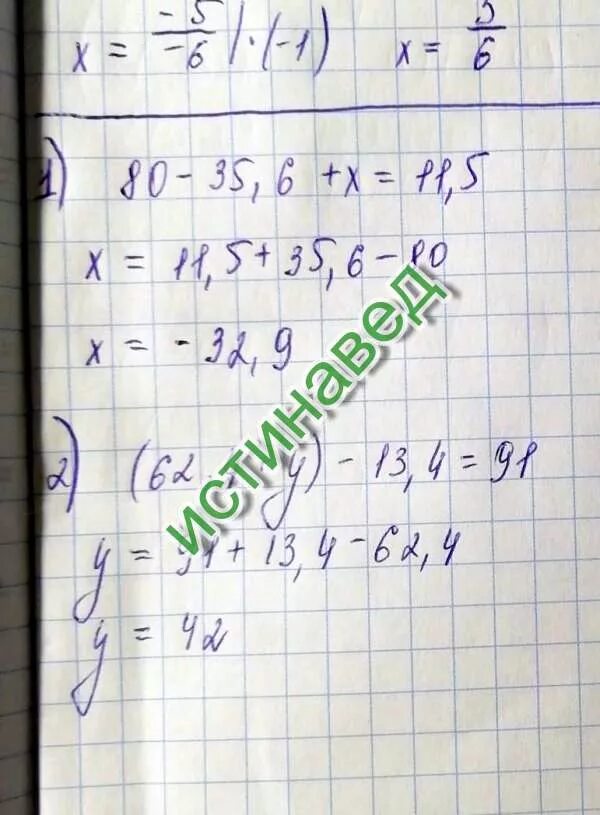 x = -5/-6 |·(-1) x = 5/6
1) 80 - 35,6 + x = 11,5
x = 11,5 + 35,6 - 80
x = - 32,9
2) (62 y) - 13,4 = 91
y = 91 + 13,4 - 62,4
y = 42
истинавед